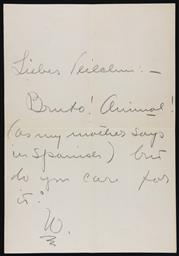 Lieber Teilchen. —
Bruto! Animal!
(as my mother says
in Spanish) but
do you care for
it?
W.